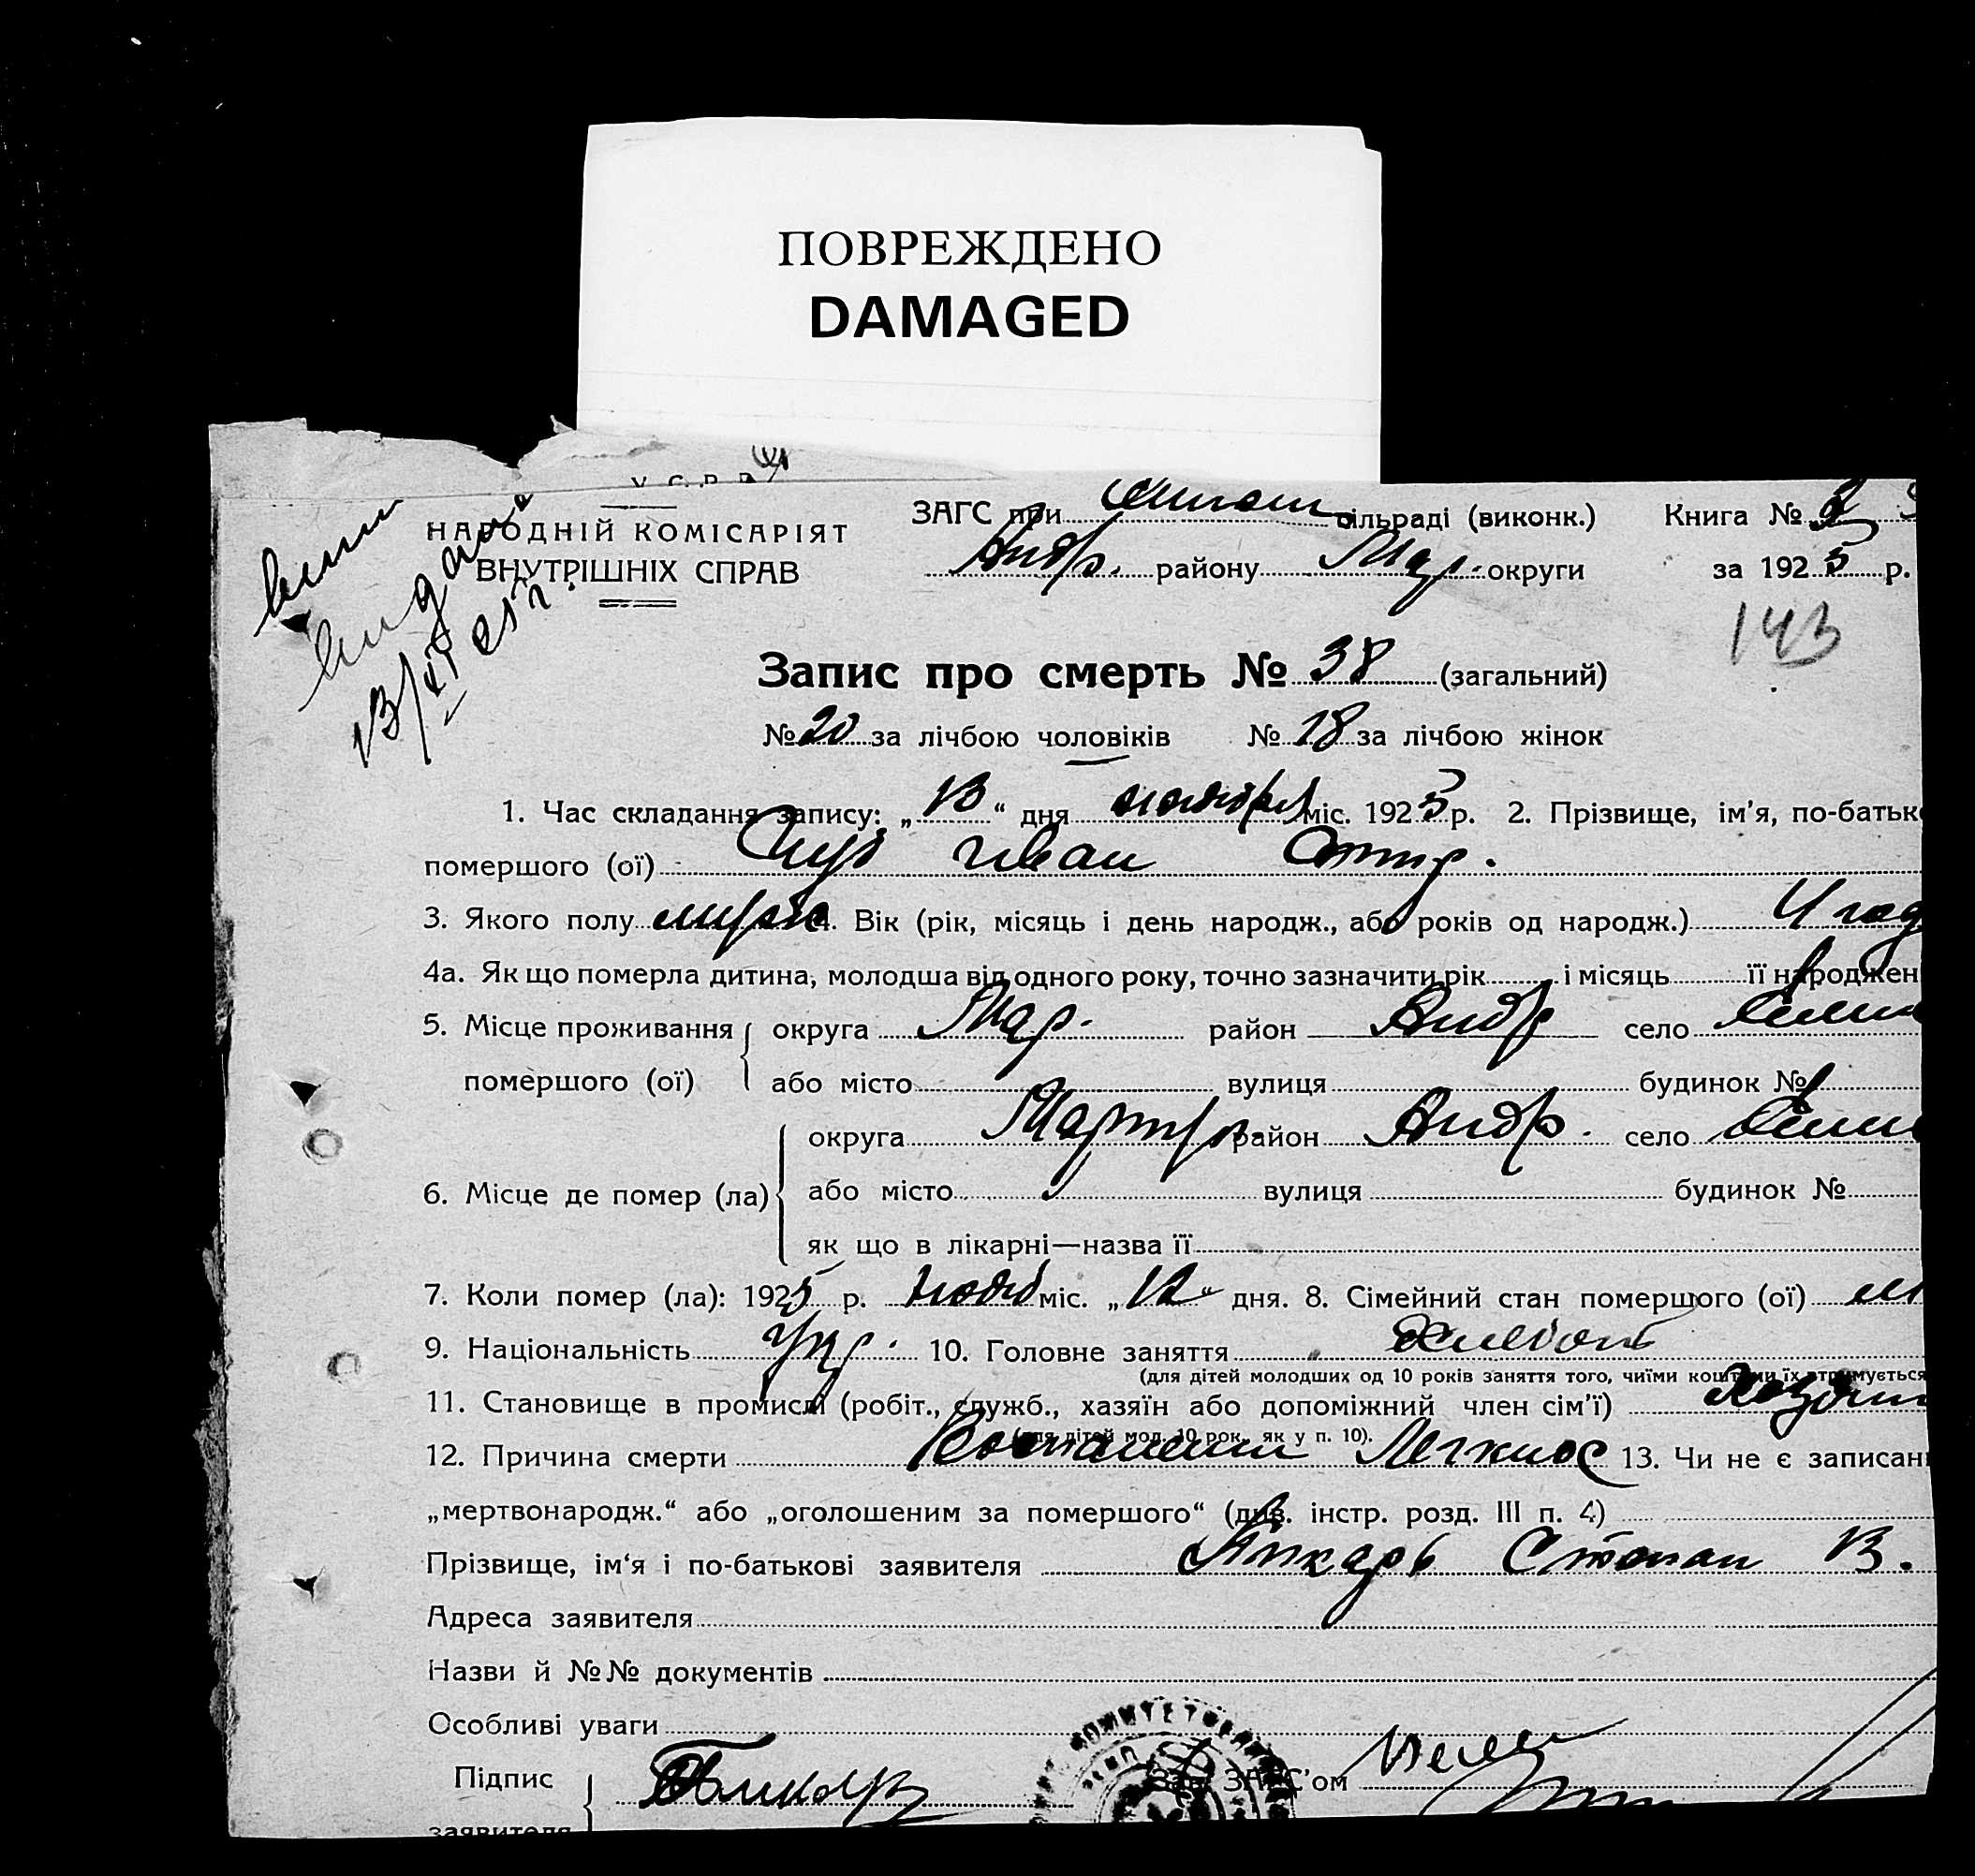 ПОВРЕЖДЕНО
DAMAGED
У. С. Р. Р.
НАРОДНІЙ КОМІСАРІЯТ
ВНУТРІШНІХ СПРАВ
ЗАГС при сільраді (виконк.) Книга №
Андр. району Мар. округи за 1925 р.
143
Запис про смерть № 38 (загальний)
№ 20 за лічбою чоловіків № 18 за лічбою жінок
1. Час складання запису: „13“ дня ноября міс. 1925 р. 2. Прізвище, ім'я, по-батьк
помершого (ої) Иван
3. Якого полу 4. Вік (рік, місяць і день народж., або років од народж.) 4 год
4а. Як що померла дитина, молодша від одного року, точно зазначити рік і місяць її народжен
5. Місце проживання округа Мар. район Андр село
помершого (ої) або місто вулиця будинок №
6. Місце де помер (ла) округа район Андр. село
або місто вулиця будинок №
як що в лікарні—назва її
7. Коли помер (ла): 1925 р. нояб міс. „12“ дня. 8. Сімейний стан помершого (ої)
9. Національність Укр. 10. Головне заняття
(для дітей молодших од 10 років заняття того, чиїми коштами їх втримується
11. Становище в промислі (робіт., служб., хазяїн або допоміжний член сім'ї)
(для дітей мол. 10 рок., як у п. 10).
12. Причина смерти Легких 13. Чи не є записан
„мертвонародж.“ або „оголошеним за помершого“ (див. інстр. розд. III п. 4)
Прізвище, ім'я і по-батькові заявителя Степан В.
Адреса заявителя
Назви й №№ документів
Особливі уваги
Підпис Зав. ЗАГС'ом
заявителя